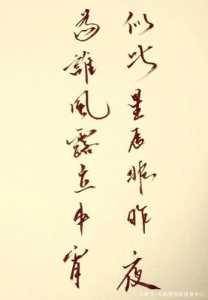 似此星辰非昨夜
為誰風露立中宵